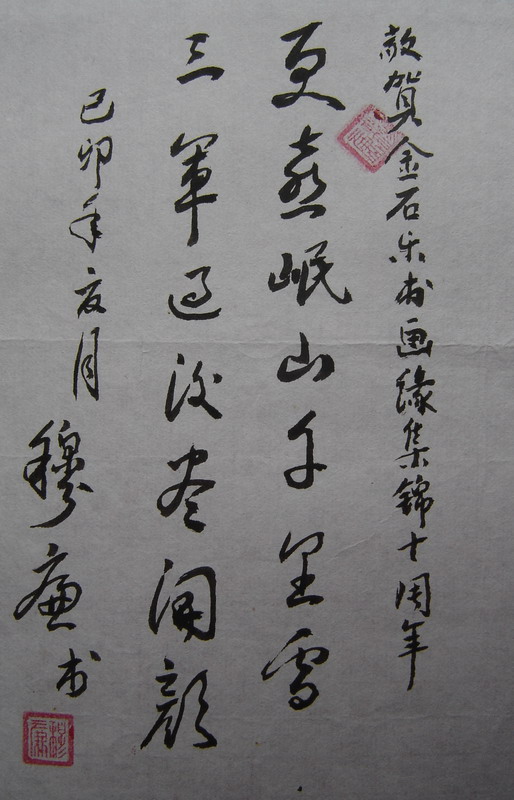 敬贺金石乐书画缘集锦十周年
更喜岷山千里雪
三军过後尽开颜
己卯年夏月
穆廉书